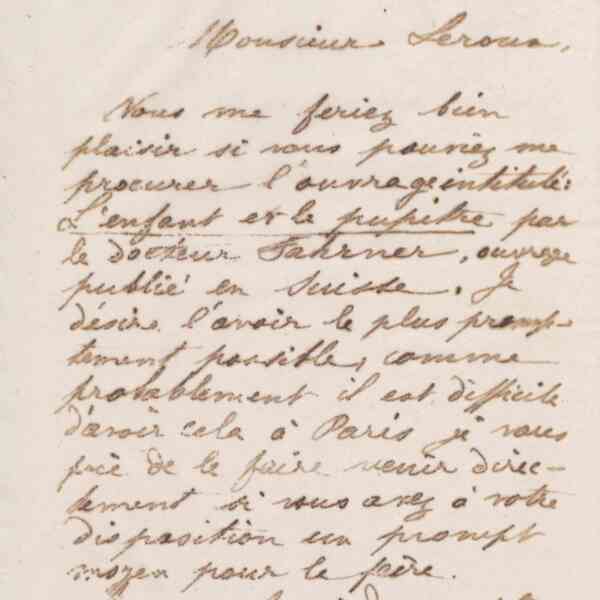 Monsieur Leroux,
Vous me feriez bien
plaisir si vous pouviez me
procurer l'ouvrage intitulé:
L'enfant et le pupitre par
le docteur Fahrner, ouvrage
publié en Suisse. Je
désire l'avoir le plus promp-
tement possible, comme
probablement il est difficile
d'avoir cela à Paris je vous
prie de le faire venir direc-
tement si vous avez à votre
disposition un prompt
moyen pour le faire.